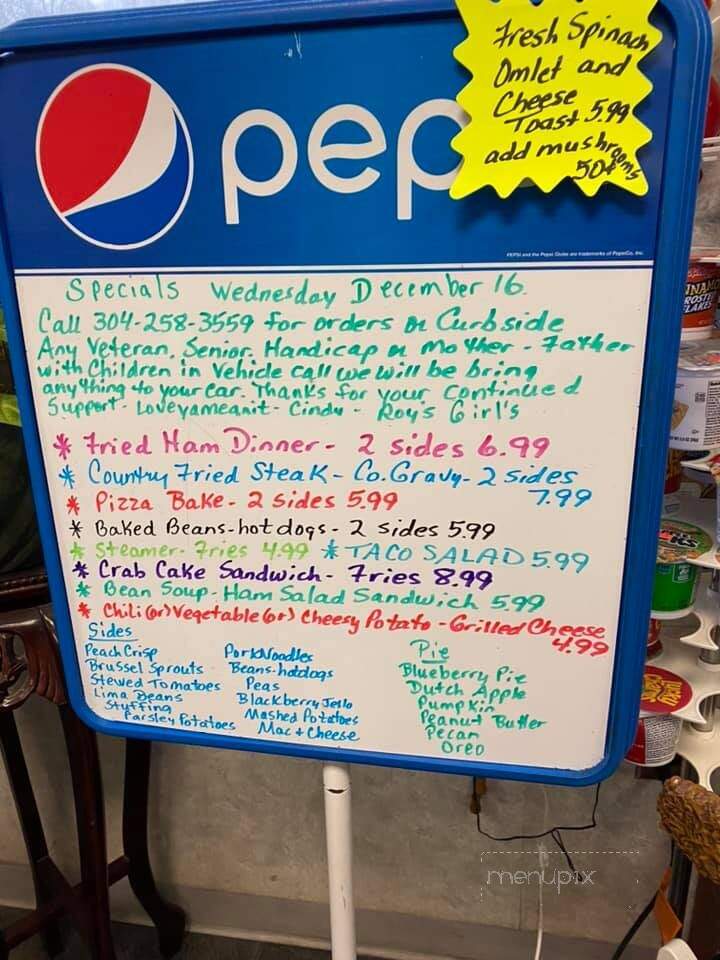 pep
Fresh Spinach
Omlet and
Cheese
Toast 5.99
add mushrooms
50¢
PEPSI and the Pepsi Globe are trademarks of PepsiCo, Inc.
Specials Wednesday December 16.
Call 304-258-3559 for orders or Curbside
Any Veteran, Senior, Handicap or Mother - Father
with Children in Vehicle call we will be bring
anything to your car. Thanks for your continued
Support - Loveyameanit - Cindy - Roy's Girl's
* Fried Ham Dinner - 2 sides 6.99
* Country Fried Steak - Co. Gravy - 2 sides
7.99
* Pizza Bake - 2 sides 5.99
* Baked Beans-hotdogs - 2 sides 5.99
* Steamer - Fries 4.99 * TACO SALAD 5.99
* Crab Cake Sandwich - Fries 8.99
* Bean Soup - Ham Salad Sandwich 5.99
* Chili (or) Vegetable (or) Cheesy Potato - Grilled Cheese
4.99
Sides
Peach Crisp
Brussel Sprouts
Stewed Tomatoes
Lima Beans
Stuffing
Parsley Potatoes
Pork Noodles
Beans-hotdogs
Peas
Blackberry Jello
Mashed Potatoes
Mac + Cheese
Pie
Blueberry Pie
Dutch Apple
Pumpkin
Peanut Butter
Pecan
Oreo
menupix